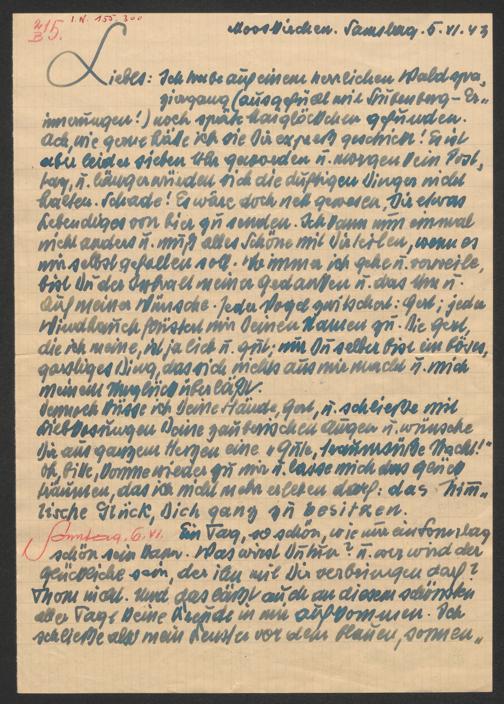 I.N. 155.300
215.
B
Mooskirchen. Samstag. 5. VI. 43
Liebes: Ich habe auf einem herrlichen Waldspa„
ziergang (ausgefüllt mit Stubenberg-Er„
innerungen!) noch späte Maiglöckchen gefunden.
Ach, wie gerne hätte ich sie Dir expreß geschickt! Es ist
aber leider sieben Uhr geworden u. morgen kein Post„
tag, u. länger würden sich die duftigen Dinger nicht
halten. Schade! Es wäre doch nett gewesen, Dir etwas
Lebendiges von hier zu senden. Ich kann nun einmal
nicht anders u. muß alles Schöne mit Dir teilen, wenn es
mir selbst gefallen soll. Wo immer ich gehe u. verweile,
bist Du der Inhalt meiner Gedanken u. das Um u.
Auf meiner Wünsche. Jeder Vogel zwitschert: Gert; jeder
Windhauch flüstert mir Deinen Namen zu. Die Gert,
die ich meine, ist ja lieb u. gut; nur Du selber bist ein böses,
garstiges Ding, das sich nichts aus mir macht u. mich
meinem Unglück überläßt.
Dennoch küsse ich Deine Hände, Gert, u. schließe mit
Liebkosungen Deine zauberischen Augen u. wünsche
Dir aus ganzem Herzen eine „Gute, traumsüße Nacht!"
Oh, bitte, komme wieder zu mir u. lasse mich das Glück
träumen, das ich nicht mehr erleben darf: das him„
lische Glück, Dich ganz zu besitzen.
Sonntag. 6. VI. Ein Tag, so schön, wie nur ein Sonntag
schön sein kann. Was wirst Du tun? u. wer wird der
Glückliche sein, der ihn mit Dir verbringen darf?
Thom nicht. Und das läßt auch an diesem schönsten
aller Tage keine Freude in mir aufkommen. Ich
schließe also mein Fenster vor dem blauen, sonnen„